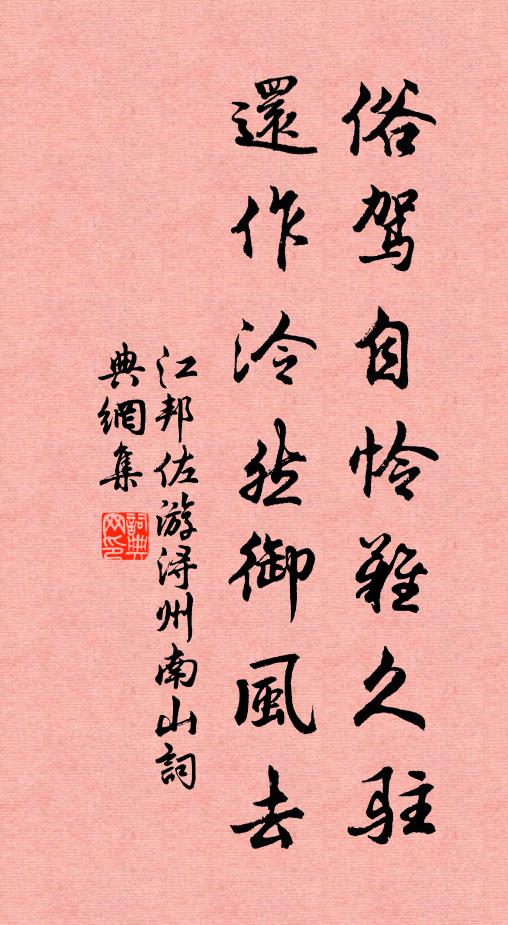 俗驾自怜難久駐
還作泠然御風去
江邦佐游浔州南山詞
典網集
詞典網印